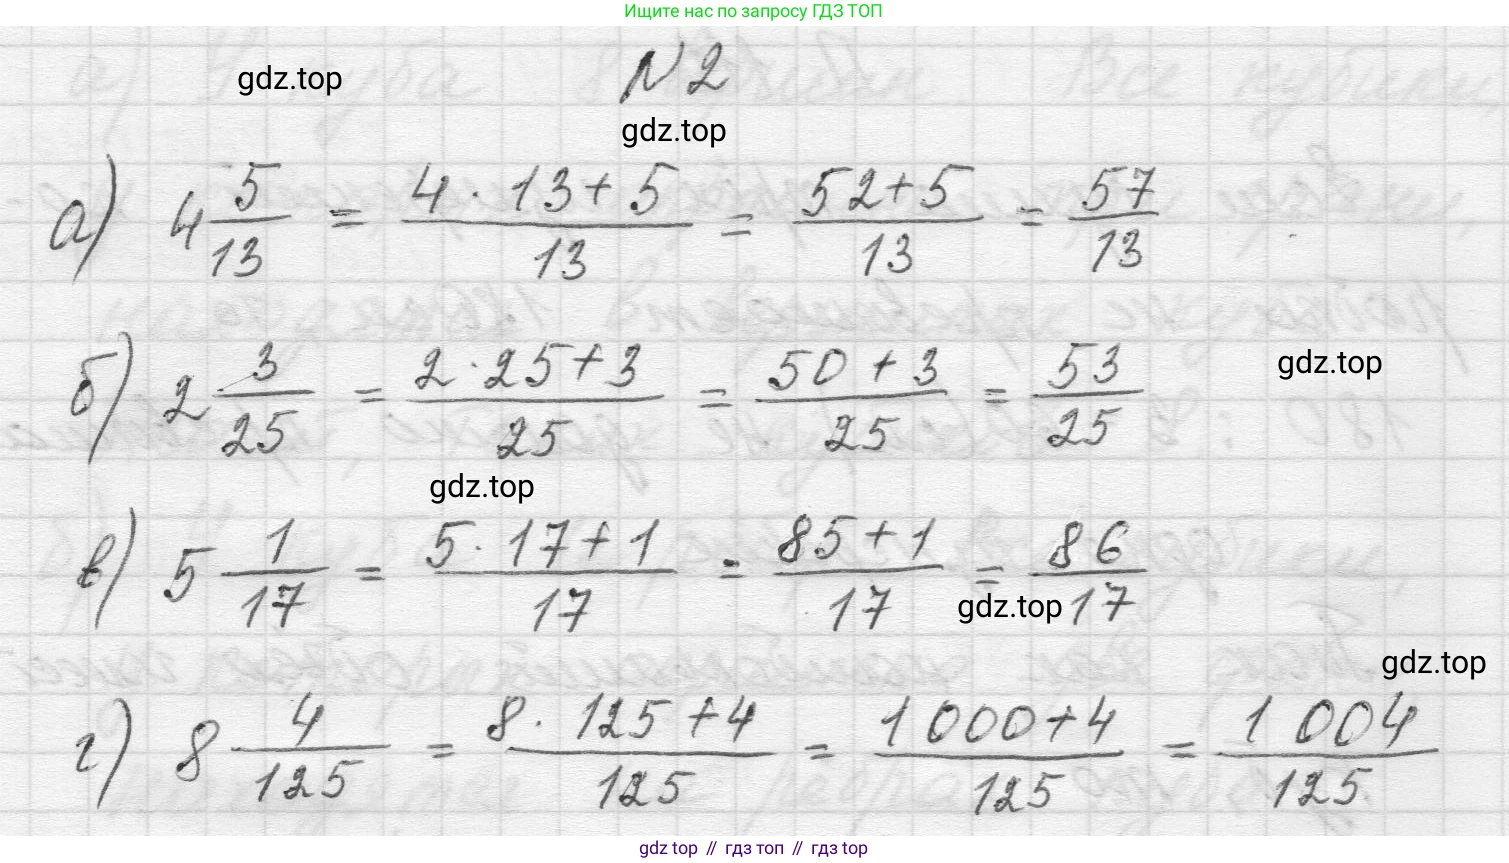 Ищите нас по запросу ГДЗ ТОП
gdz.top
№2
gdz.top
а) 4 5/13 = (4 · 13 + 5)/13 = (52 + 5)/13 = 57/13
б) 2 3/25 = (2 · 25 + 3)/25 = (50 + 3)/25 = 53/25
gdz.top
gdz.top
в) 5 1/17 = (5 · 17 + 1)/17 = (85 + 1)/17 = 86/17
gdz.top
gdz.top
г) 8 4/125 = (8 · 125 + 4)/125 = (1000 + 4)/125 = 1004/125
gdz top // гдз топ // гдз top